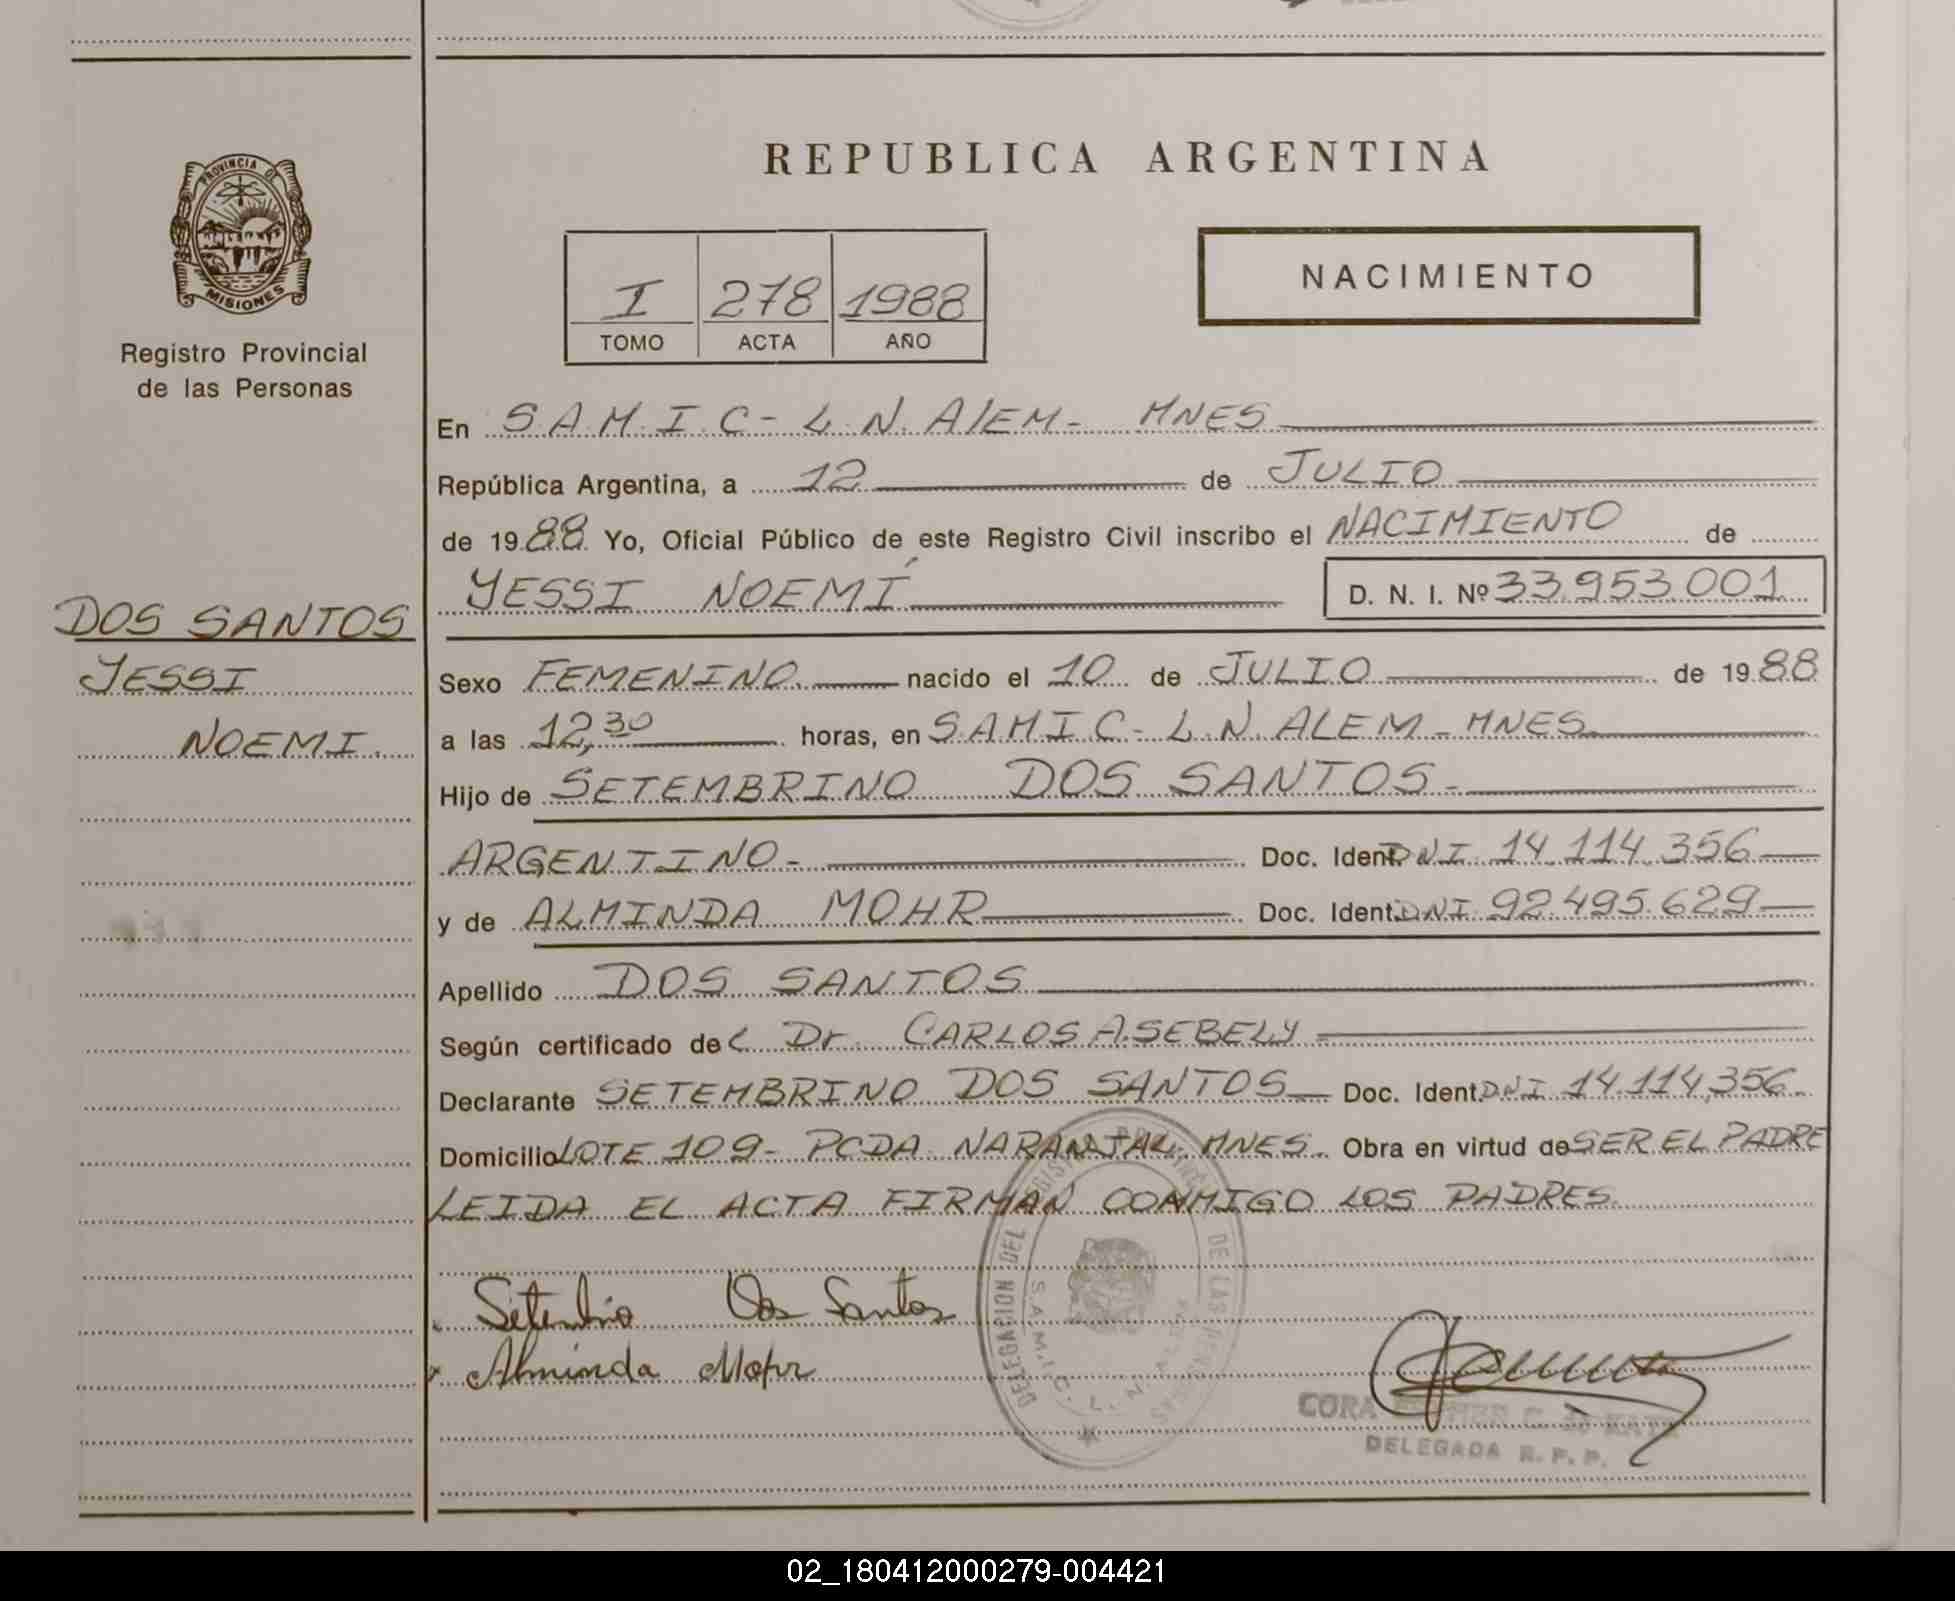 PROVINCIA DE
MISIONES
Registro Provincial
de las Personas
DOS SANTOS
YESSI
NOEMI.
REPUBLICA ARGENTINA
I 278 1988
TOMO ACTA AÑO
NACIMIENTO
En S.A.M.I.C- L.N. AlEM- MNES
República Argentina, a 12 de JULIO
de 1988 Yo, Oficial Público de este Registro Civil inscribo el NACIMIENTO de
YESSI NOEMÍ D. N. I. Nº 33.953.001
Sexo FEMENINO. nacido el 10 de JULIO de 1988
a las 12,30 horas, en S.A.M.I.C- L.N. ALEM - MNES
Hijo de SETEMBRINO DOS SANTOS -
ARGENTINO - Doc. Ident. DNI 14.114.356
y de ALMINDA MOHR Doc. Ident. DNI 92.495.629
Apellido DOS SANTOS
Según certificado del Dr. CARLOS A. SEBELY
Declarante SETEMBRINO DOS SANTOS Doc. Ident. DNI 14.114,356.
Domicilio LOTE 109- PCDA NARANJAL, MNES. Obra en virtud de SER EL PADRE
LEIDA EL ACTA FIRMAN CONMIGO LOS PADRES.
Dos Santos
Alminda Mohr
DELEGACION DEL REGISTRO PROVINCIAL DE LAS PERSONAS
S.A.M.I.C. L. N. ALEM
CORA
DELEGADA R. P. P.
02_180412000279-004421